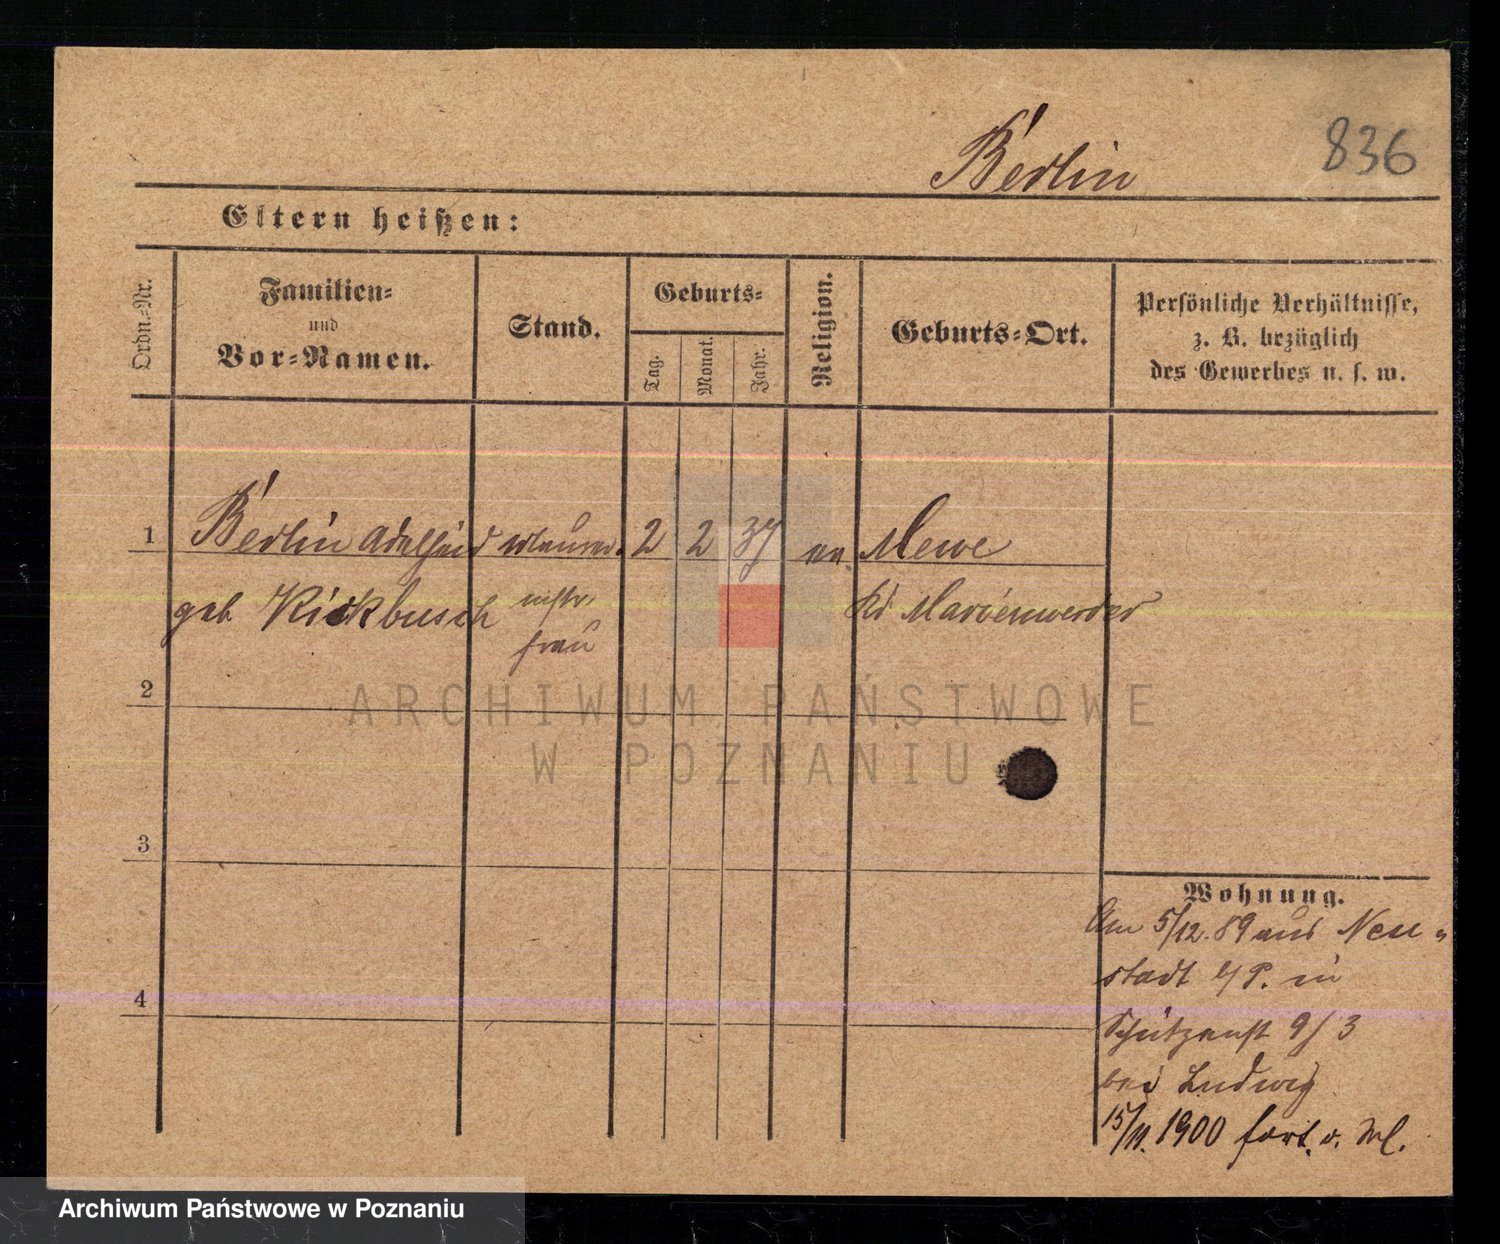 Berlin 836
Eltern heißen:
Ordn.-Nr.
Familien-
und
Vor-Namen.
Stand.
Geburts-
Tag.
Monat.
Jahr.
Religion.
Geburts-Ort.
Persönliche Verhältnisse,
z. B. bezüglich
des Gewerbes u. s. w.
1 Berlin Adelheid Maurer- 2 2 37 ev. Mewe
geb. Kickbusch mstr. Kr. Marienwerder
frau
2
ARCHIWUM PAŃSTWOWE
W POZNANIU
3
Wohnung.
Am 5/12.89 aus Neu-
stadt b/P. in
4
Schützenst 9/3
bei Ludwig
15/11.1900 fort. o.
Archiwum Państwowe w Poznaniu